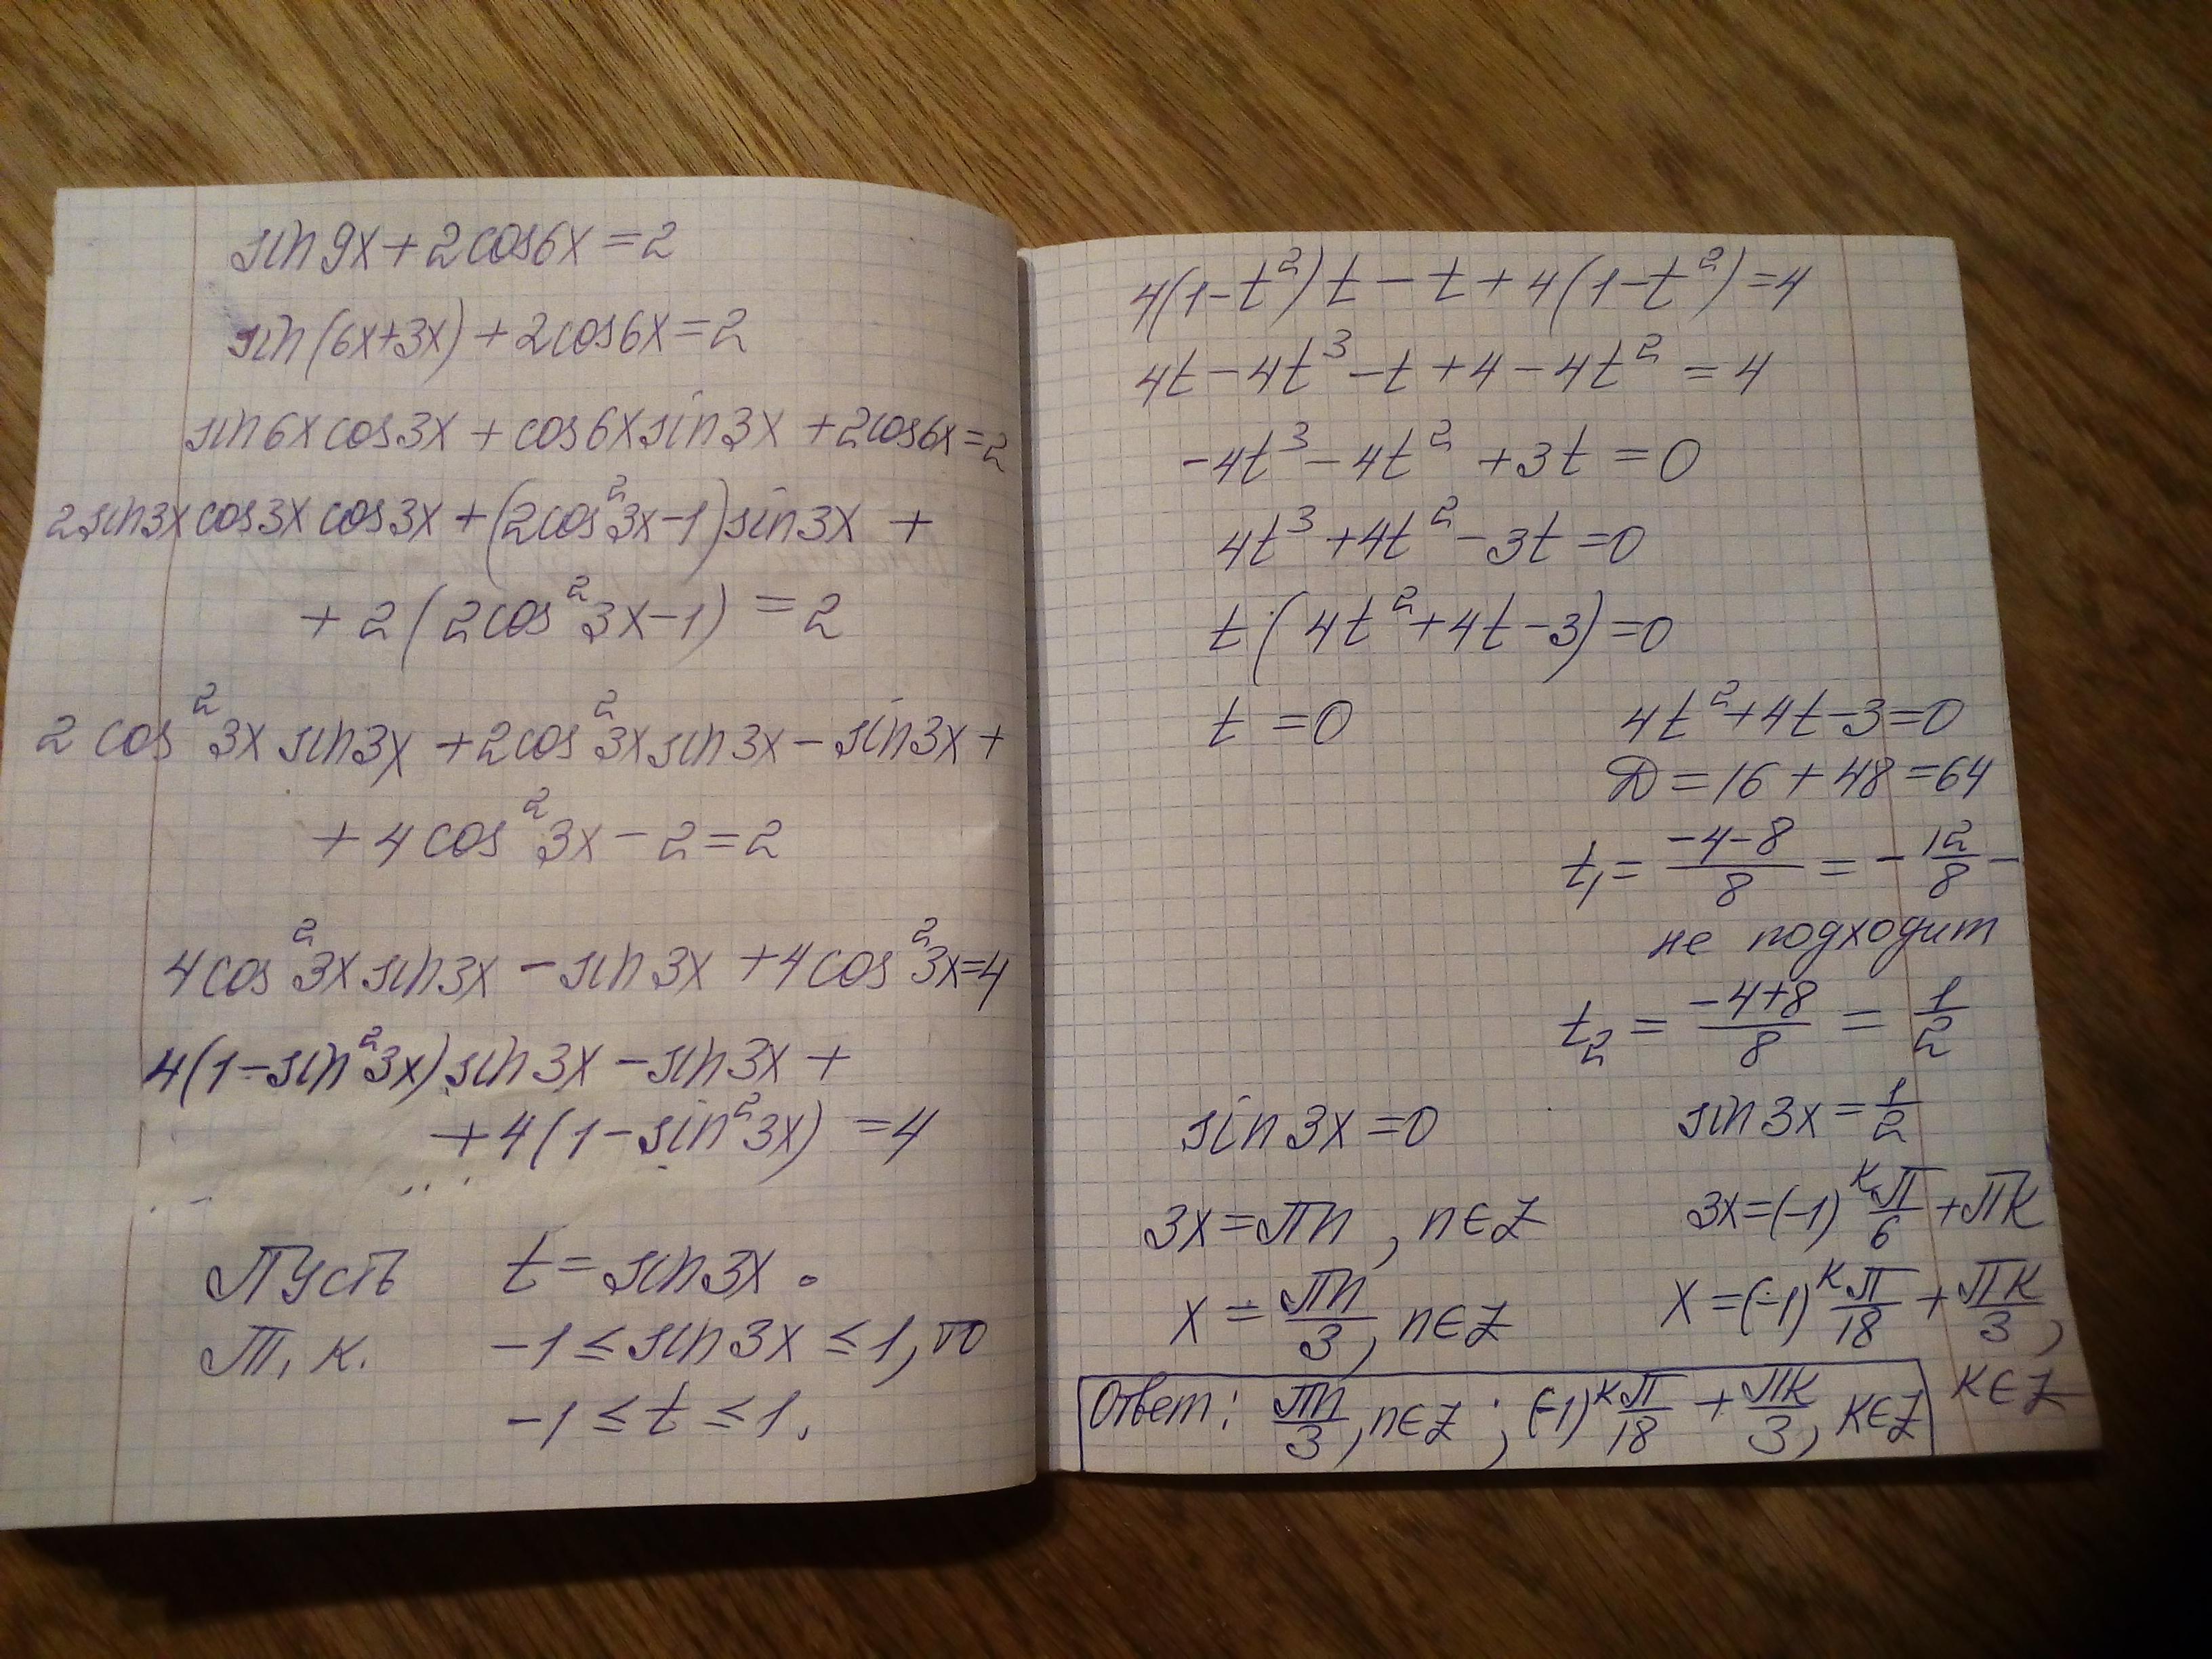 sin9x+2cos6x=2
sin(6x+3x)+2cos6x=2
sin6xcos3x+cos6xsin3x+2cos6x=2
2sin3xcos3xcos3x+(2cos²3x-1)sin3x+
+2(2cos²3x-1)=2
2cos²3xsin3x+2cos²3xsin3x-sin3x+
+4cos²3x-2=2
4cos²3xsin3x-sin3x+4cos²3x=4
4(1-sin²3x)sin3x-sin3x+
+4(1-sin²3x)=4
Пусть t=sin3x.
Т.к. -1≤sin3x≤1, то
-1≤t≤1.
4(1-t²)t-t+4(1-t²)=4
4t-4t³-t+4-4t²=4
-4t³-4t²+3t=0
4t³+4t²-3t=0
t(4t²+4t-3)=0
t=0 4t²+4t-3=0
D=16+48=64
t₁=(-4-8)/8=-12/8-
не подходит
t₂=(-4+8)/8=1/2
sin3x=0 sin3x=1/2
3x=πn, n∈Z 3x=(-1)^k π/6+πk
x=πn/3, n∈Z x=(-1)^k π/18+πk/3,
k∈Z
Ответ: πn/3, n∈Z; (-1)^k π/18+πk/3, k∈Z